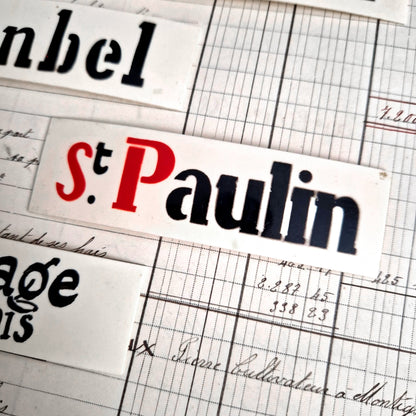 nbel
7.200
St. Paulin
age
is
425
2.282 45
338 83
Pierre Cultivateur à Montig